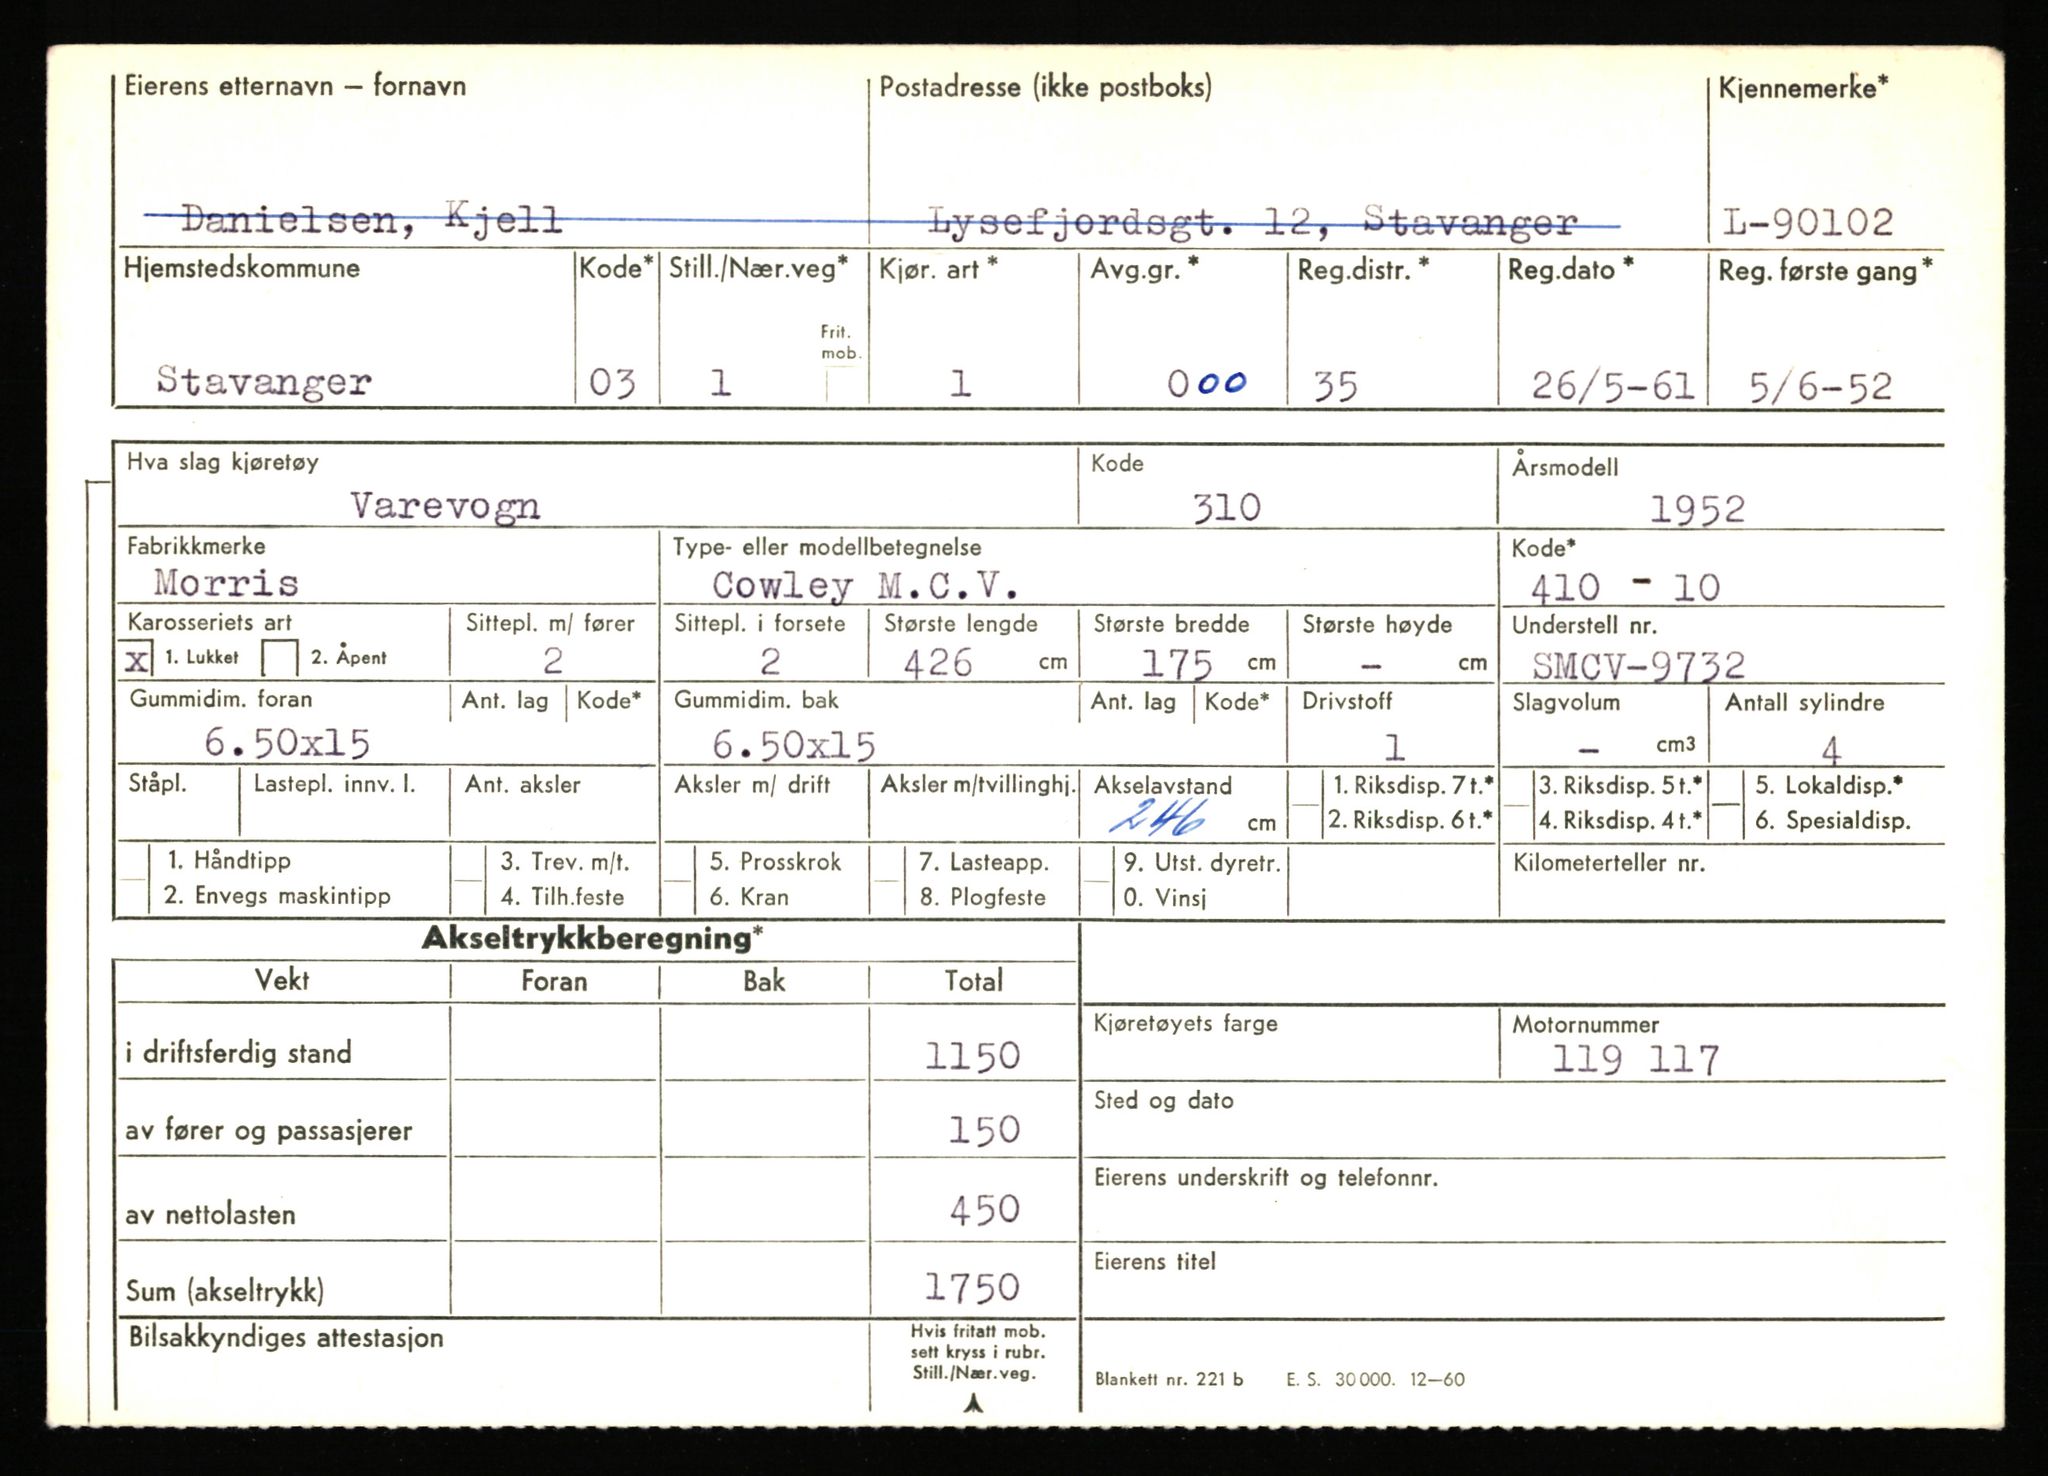 Eierens etternavn — fornavn Postadresse (ikke postboks) Kjennemerke*
Danielsen, Kjell Lysefjordsgt. 12, Stavanger L-90102
Hjemstedskommune Kode* Still./Nær.veg* Kjør. art * Avg.gr. * Reg.distr. * Reg.dato * Reg. første gang *
Frit.
mob.
Stavanger 03 1 1 000 35 26/5-61 5/6-52
Hva slag kjøretøy Kode Årsmodell
Varevogn 310 1952
Fabrikkmerke Type- eller modellbetegnelse Kode*
Morris Cowley M.C.V. 410 - 10
Karosseriets art Sittepl. m/ fører Sittepl. i forsete Største lengde Største bredde Største høyde Understell nr.
x 1. Lukket 2. Åpent 2 2 426 cm 175 cm - cm SMCV-9732
Gummidim. foran Ant. lag Kode* Gummidim. bak Ant. lag Kode* Drivstoff Slagvolum Antall sylindre
6.50x15 6.50x15 1 - cm3 4
Ståpl. Lastepl. innv. l. Ant. aksler Aksler m/ drift Aksler m/tvillinghj. Akselavstand 1. Riksdisp. 7 t.* 3. Riksdisp. 5 t.* 5. Lokaldisp.*
246 cm 2. Riksdisp. 6 t.* 4. Riksdisp. 4 t.* 6. Spesialdisp.
1. Håndtipp 3. Trev. m/t. 5. Prosskrok 7. Lasteapp. 9. Utst. dyretr. Kilometerteller nr.
2. Envegs maskintipp 4. Tilh.feste 6. Kran 8. Plogfeste 0. Vinsj
Akseltrykkberegning*
Vekt Foran Bak Total
Kjøretøyets farge Motornummer
i driftsferdig stand 1150 119 117
Sted og dato
av fører og passasjerer 150
Eierens underskrift og telefonnr.
av nettolasten 450
Eierens titel
Sum (akseltrykk) 1750
Bilsakkyndiges attestasjon Hvis fritatt mob.
sett kryss i rubr.
Still./Nær.veg.
Blankett nr. 221 b E. S. 30 000. 12—60